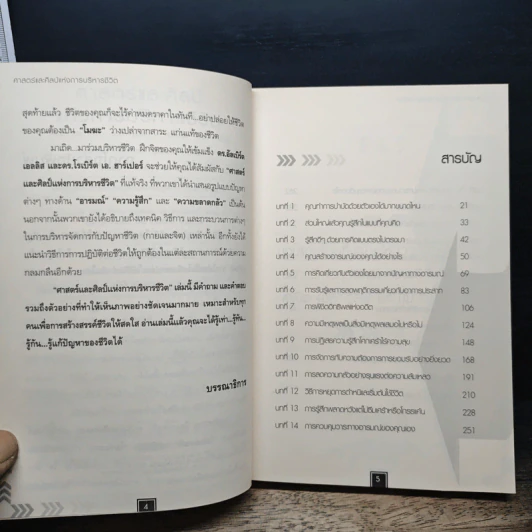 ศาสตร์และศิลป์แห่งการบริหารชีวิต
สุดท้ายแล้ว ชีวิตของคุณก็จะไร้ค่าหมดราคาในทันที...อย่าปล่อยให้ชีวิต
ของคุณต้องเป็น "โมฆะ" ว่างเปล่าจากสาระ แก่นแท้ของชีวิต
มาเถิด...มาร่วมบริหารชีวิต ฝึกจิตของคุณให้เข้มแข็ง ดร.อัลเบิร์ต
เอลลิส และดร.โรเบิร์ต เอ. ฮาร์เปอร์ จะช่วยให้คุณได้สัมผัสกับ "ศาสตร์
และศิลป์แห่งการบริหารชีวิต" ที่แท้จริง ที่พวกเขาได้นำเสนอรูปแบบปัญหา
ต่างๆ ทางด้าน "อารมณ์" "ความรู้สึก" และ "ความขลาดกลัว" เป็นต้น
นอกจากนั้นพวกเขายังได้อธิบายถึงเทคนิค วิธีการ และกระบวนการต่างๆ
ในการบริหารจัดการกับปัญหาชีวิต (กายและจิต) เหล่านั้น อีกทั้งยังได้
แนะนำวิธีการการปฏิบัติต่อชีวิตให้ถูกต้องในแต่ละสถานการณ์ด้วยความ
กลมกลืนอีกด้วย
"ศาสตร์และศิลป์แห่งการบริหารชีวิต" เล่มนี้ มีคำถาม และคำตอบ
รวมถึงตัวอย่างที่ทำให้เห็นภาพอย่างชัดเจนมากมาย เหมาะสำหรับทุก
คนเพื่อการสร้างสรรค์ชีวิตให้สดใส อ่านเล่มนี้แล้วคุณจะได้รู้เท่า...รู้ทัน...
รู้กัน...รู้แก้ปัญหาของชีวิตได้
บรรณาธิการ
4
สารบัญ
บทที่ 1 คุณทำการบำบัดด้วยตัวเองได้มากขนาดไหน 21
บทที่ 2 ส่วนใหญ่แล้วคุณรู้สึกในแบบที่คุณคิด 33
บทที่ 3 รู้สึกดีๆ ด้วยการคิดแบบตรงไปตรงมา 42
บทที่ 4 คุณสร้างอารมณ์ของคุณได้อย่างไร 50
บทที่ 5 การคิดเกี่ยวกับตัวเองโดยมาจากปัญหาทางอารมณ์ 69
บทที่ 6 การรับรู้และการลองพฤติกรรมเกี่ยวกับอาการประสาท 83
บทที่ 7 การพิชิตอิทธิพลแห่งอดีต 106
บทที่ 8 ความมีเหตุผลเป็นสิ่งมีเหตุผลเสมอไปหรือไม่ 124
บทที่ 9 การปฏิเสธความรู้สึกโศกเศร้าไร้ความสุข 148
บทที่ 10 การจัดการกับความต้องการการยอมรับอย่างยิ่งยวด 168
บทที่ 11 การลดความกลัวอย่างรุนแรงต่อความล้มเหลว 191
บทที่ 12 วิธีการหยุดการตำหนิและเริ่มต้นใช้ชีวิต 210
บทที่ 13 การรู้สึกพลาดหวังแต่ไม่ซึมเศร้าหรือโกรธแค้น 228
บทที่ 14 การควบคุมวาระทางอารมณ์ของคุณเอง 251
5